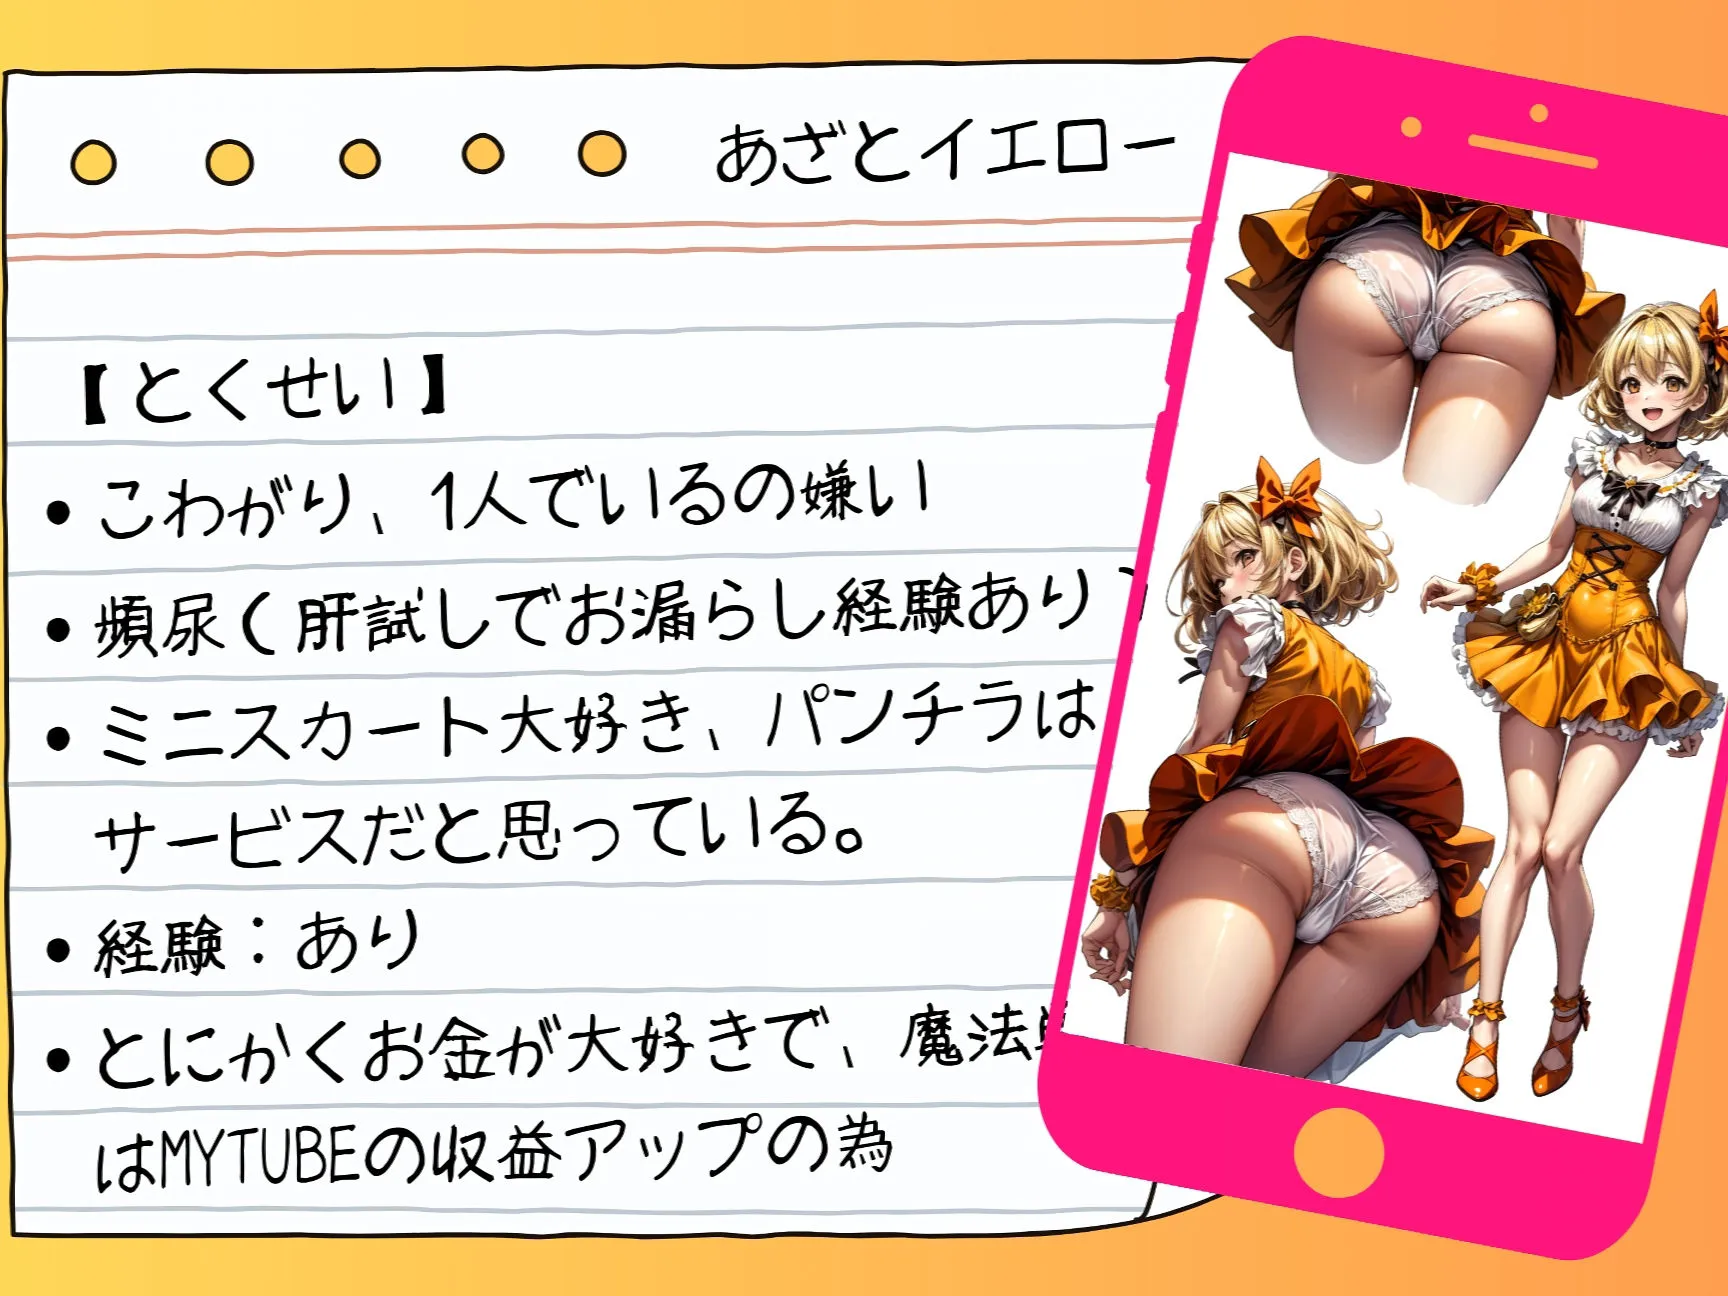 あざとイエロー
【とくせい】
• こわがり、1人でいるの嫌い
• 頻尿(肝試しでお漏らし経験あり)
• ミニスカート大好き、パンチラは
サービスだと思っている。
• 経験：あり
• とにかくお金が大好きで、魔法
はMYTUBEの収益アップの為